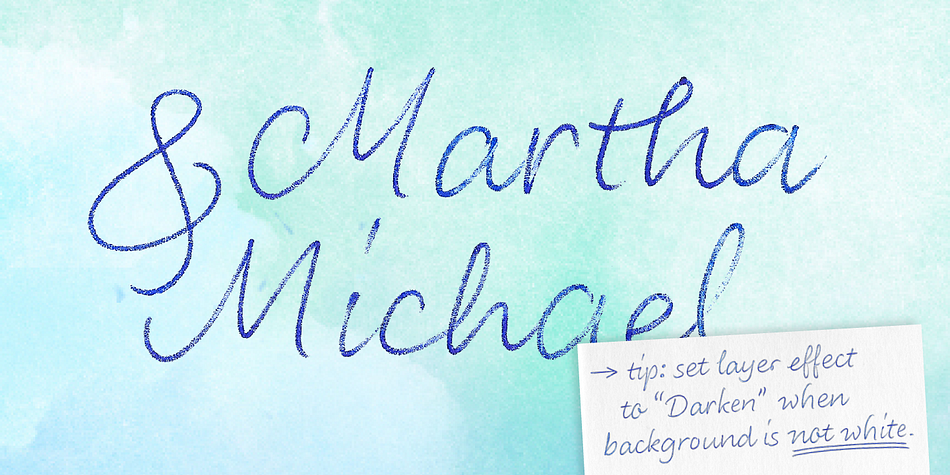 & Martha
Michael
→ tip: set layer effect
to “Darken” when
background is not white.